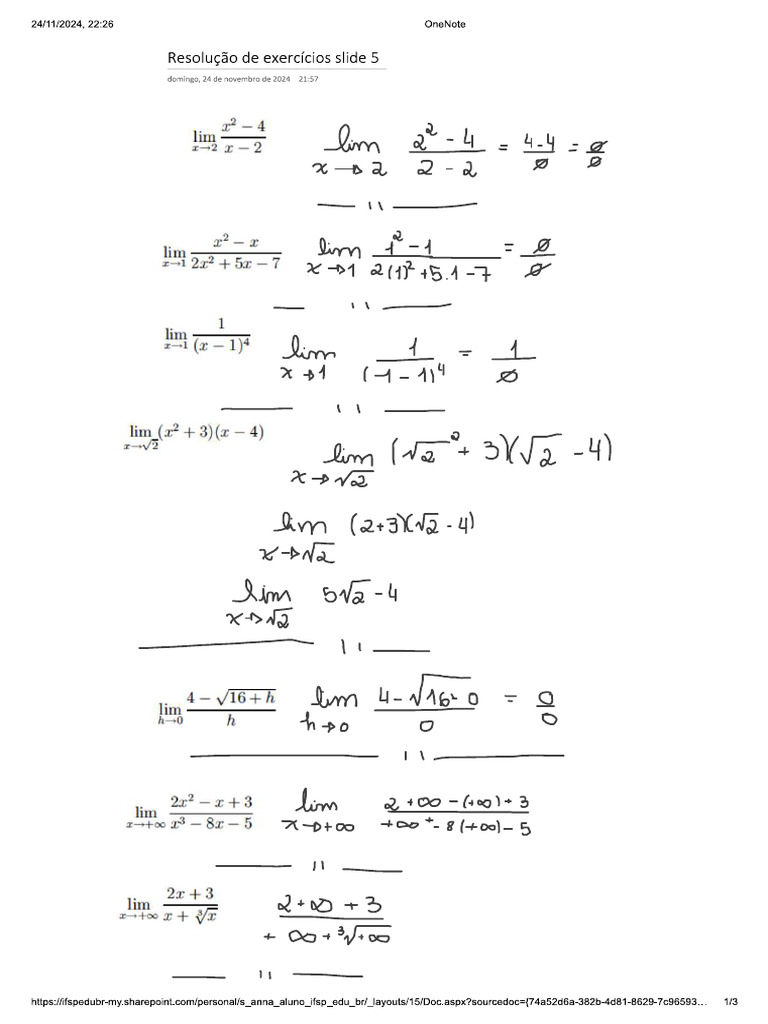 24/11/2024, 22:26 OneNote
Resolução de exercícios slide 5
domingo, 24 de novembro de 2024 21:57
lim x→2 (x² − 4)/(x − 2) lim x→2 (2² − 4)/(2 − 2) = (4-4)/0 = 0/0
lim x→1 (x² − x)/(2x² + 5x − 7) lim x→1 (1² − 1)/(2(1)² + 5.1 − 7) = 0/0
lim x→1 1/(x − 1)⁴ lim x→1 1/(-1 - 1)⁴ = 1/0
lim x→√2 (x² + 3)(x − 4)
lim x→√2 (√2² + 3)(√2 − 4)
lim x→√2 (2+3)(√2 - 4)
lim x→√2 5√2 - 4
lim h→0 (4 − √(16 + h))/h lim h→0 (4 - √(16- 0))/0 = 0/0
lim x→+∞ (2x² − x + 3)/(x³ − 8x − 5) lim x→+∞ (2 +∞ - (+∞) + 3)/(+∞ + - 8(+∞) - 5)
lim x→+∞ (2x + 3)/(x + ∛x) (2 + ∞ + 3)/(+ ∞ + ³√+∞)
https://ifspedubr-my.sharepoint.com/personal/s_anna_aluno_ifsp_edu_br/_layouts/15/Doc.aspx?sourcedoc={74a52d6a-382b-4d81-8629-7c96593... 1/3